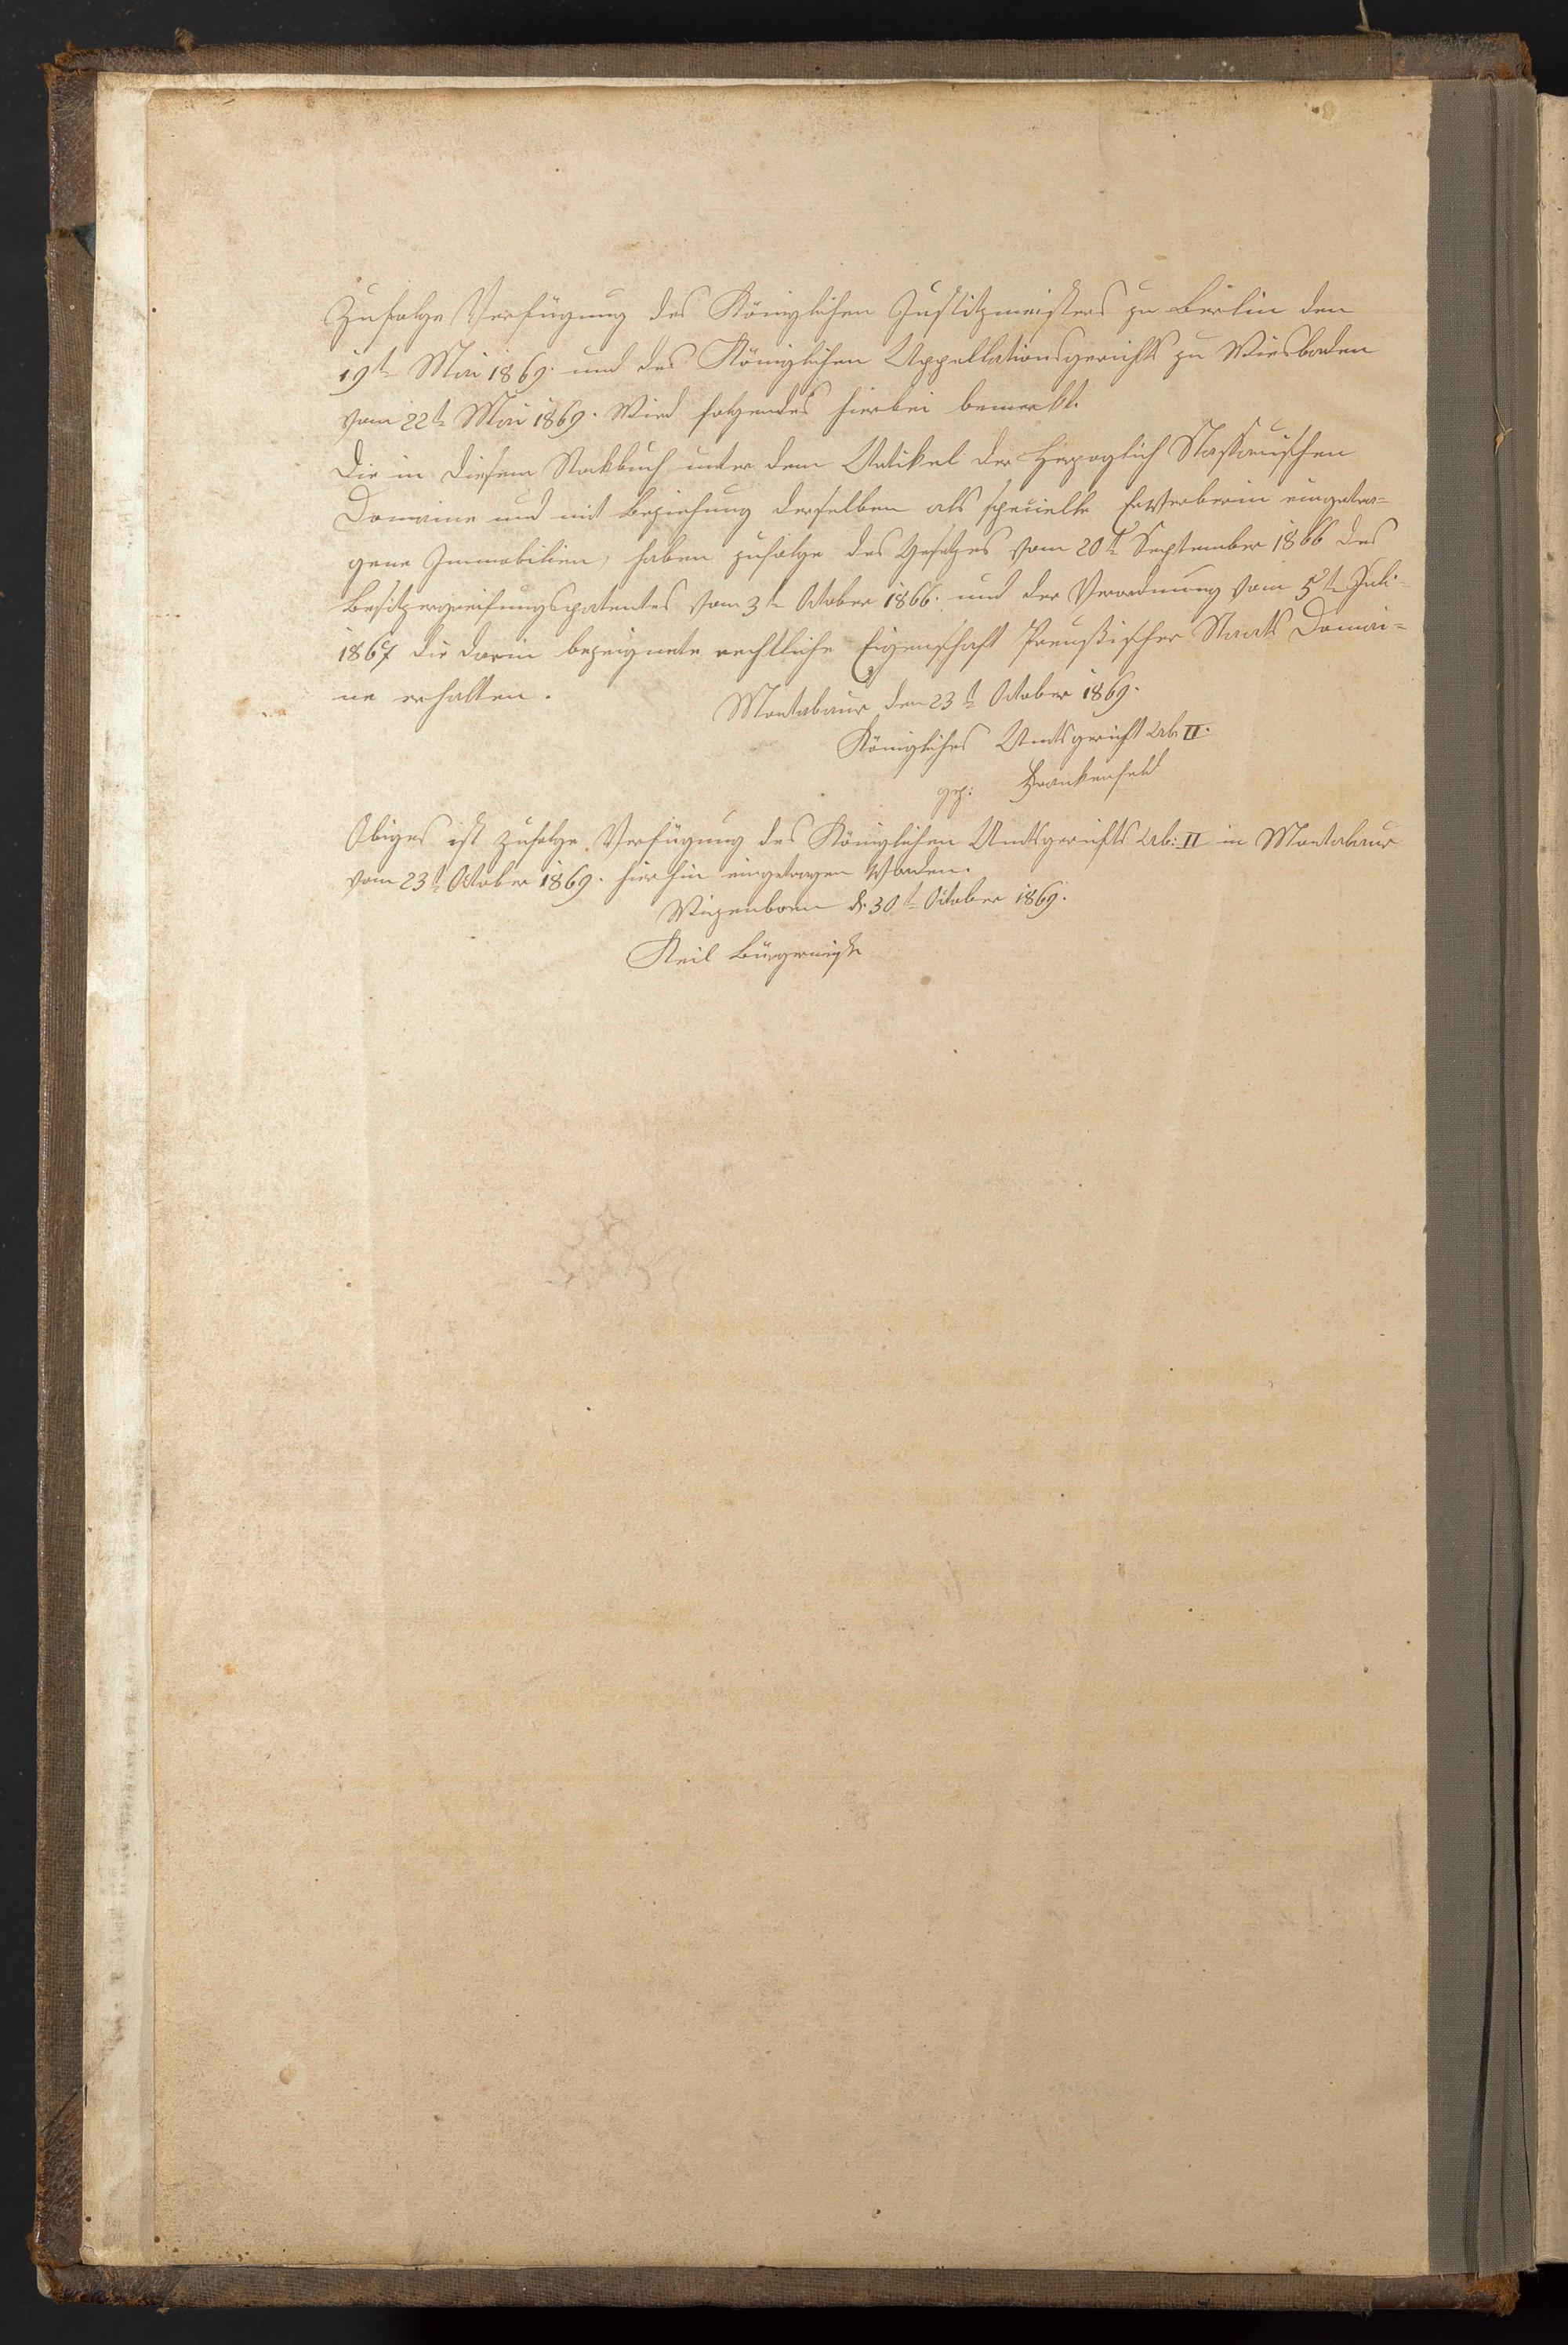 Zufolge Verfügung des Königlichen Justitzmeisters zu Berlin den
19t Mai 1869. und des Königlichen Appellationsgerichts zu Wiesbaden
vom 22t Mai 1869. Wird folgendes hierbei bemerkt.
Die in diesem Stockbuch unter dem Artikel der Herzoglich Nassauischen
Domaine und mit Beziehung derselben als specielle Erwerberin eingetra=
gene Immobilien, haben zufolge des Gesetzes vom 20t September 1866 des
Besitzergreifungspatentes vom 3t October 1866. und der Verordnung vom 5t Juli
1867 die darin bezeignete rechtliche Eigenschaft Preußischer Staats Domai=
ne erhalten.
Montabaur den 23t October 1869.
Königliches Amtsgericht Ab. II.
gez: Frankenfeld
Obiges ist zufolge Verfügung des Königlichen Amtsgerichts Ab: II in Montabaur
vom 23t October 1869. hierhin eingetragen Worden.
d. 30t October 1869.
Keil Bürgermeister